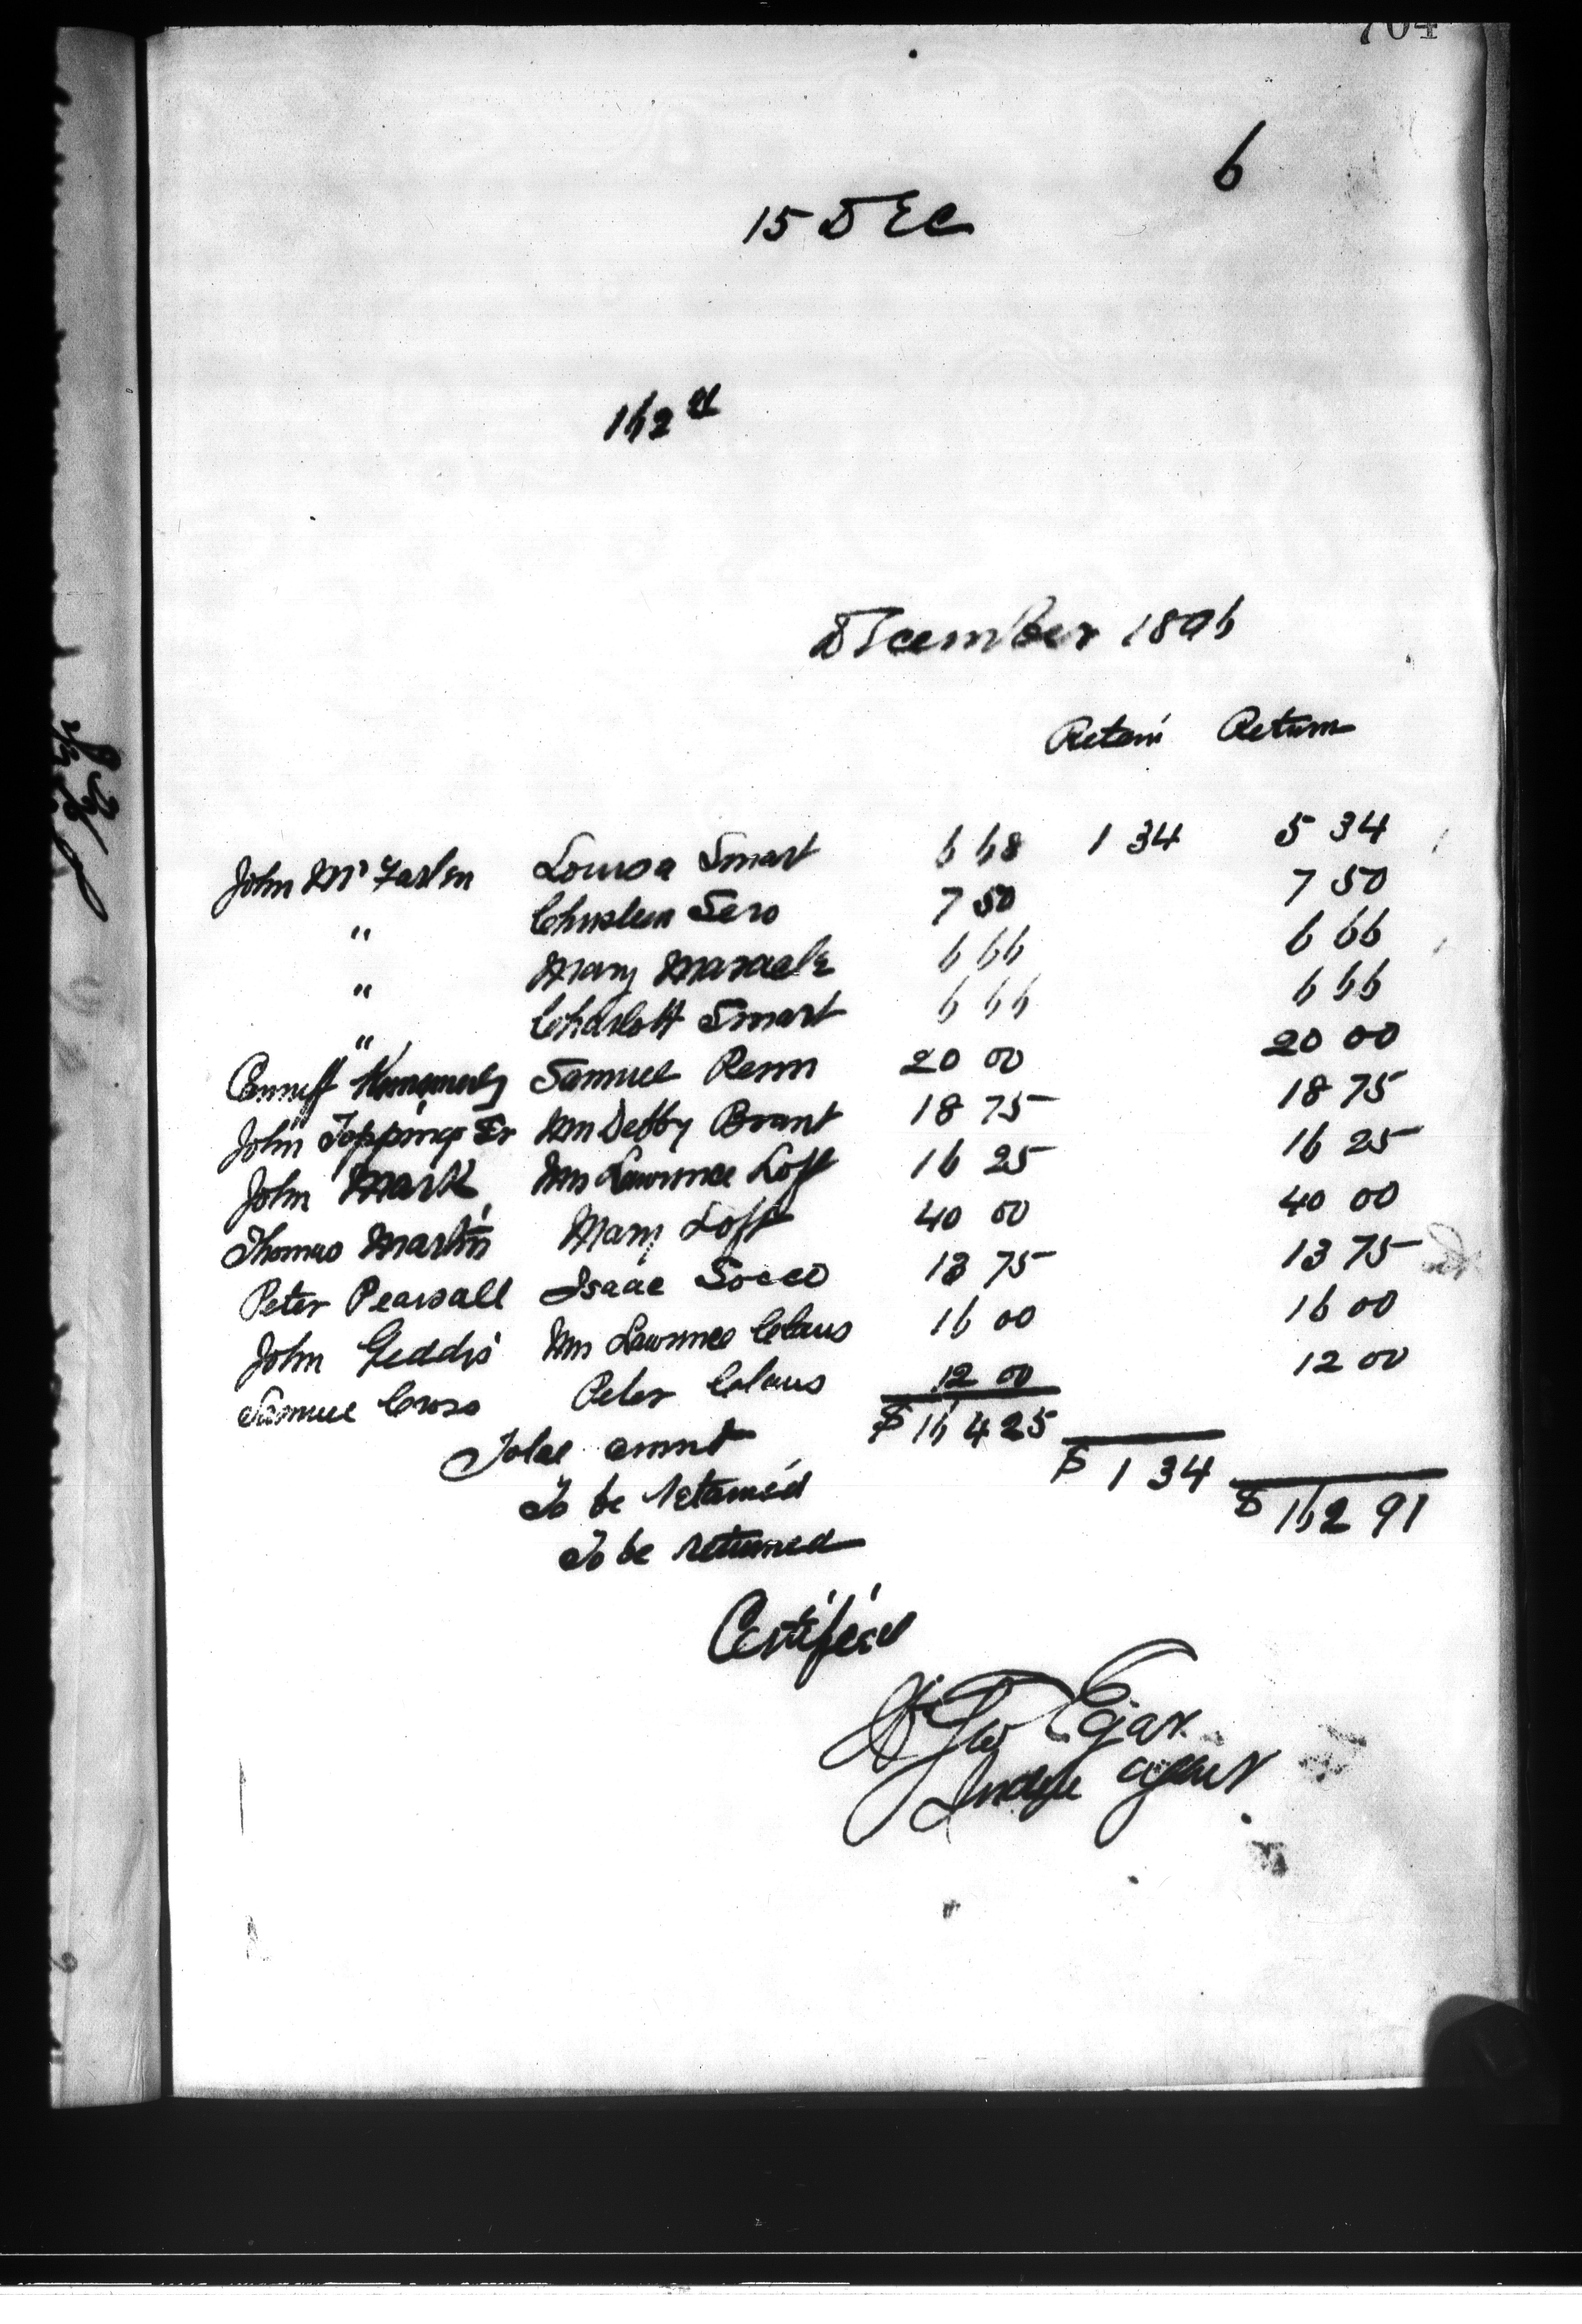 704
6
15 DEC
162 91
December 1896
Retain Return
John McFarlen Louisa Smart 6 68 1 34 5 34
" Christeen Sero 7 50 7 50
" Mary Maracle 6 66 6 66
" Charlott Smart 6 66 6 66
Canniff Samuel Penn 20 00 20 00
John Toppings Sr Mrs Debby Brant 18 75 18 75
John Mark Mrs Lawrence Loft 16 25 16 25
Thomas Martin Mary Loft 40 00 40 00
Peter Pearsall Isaac Socco 13 75 13 75
John Geddis Mrs Lawrence Claus 16 00 16 00
Samuel Cross Peter Claus 12 00 12 00
Total amnt $164 25
To be retained $1 34
To be returned $162 91
Certified
Geo Egar
Indian Agent